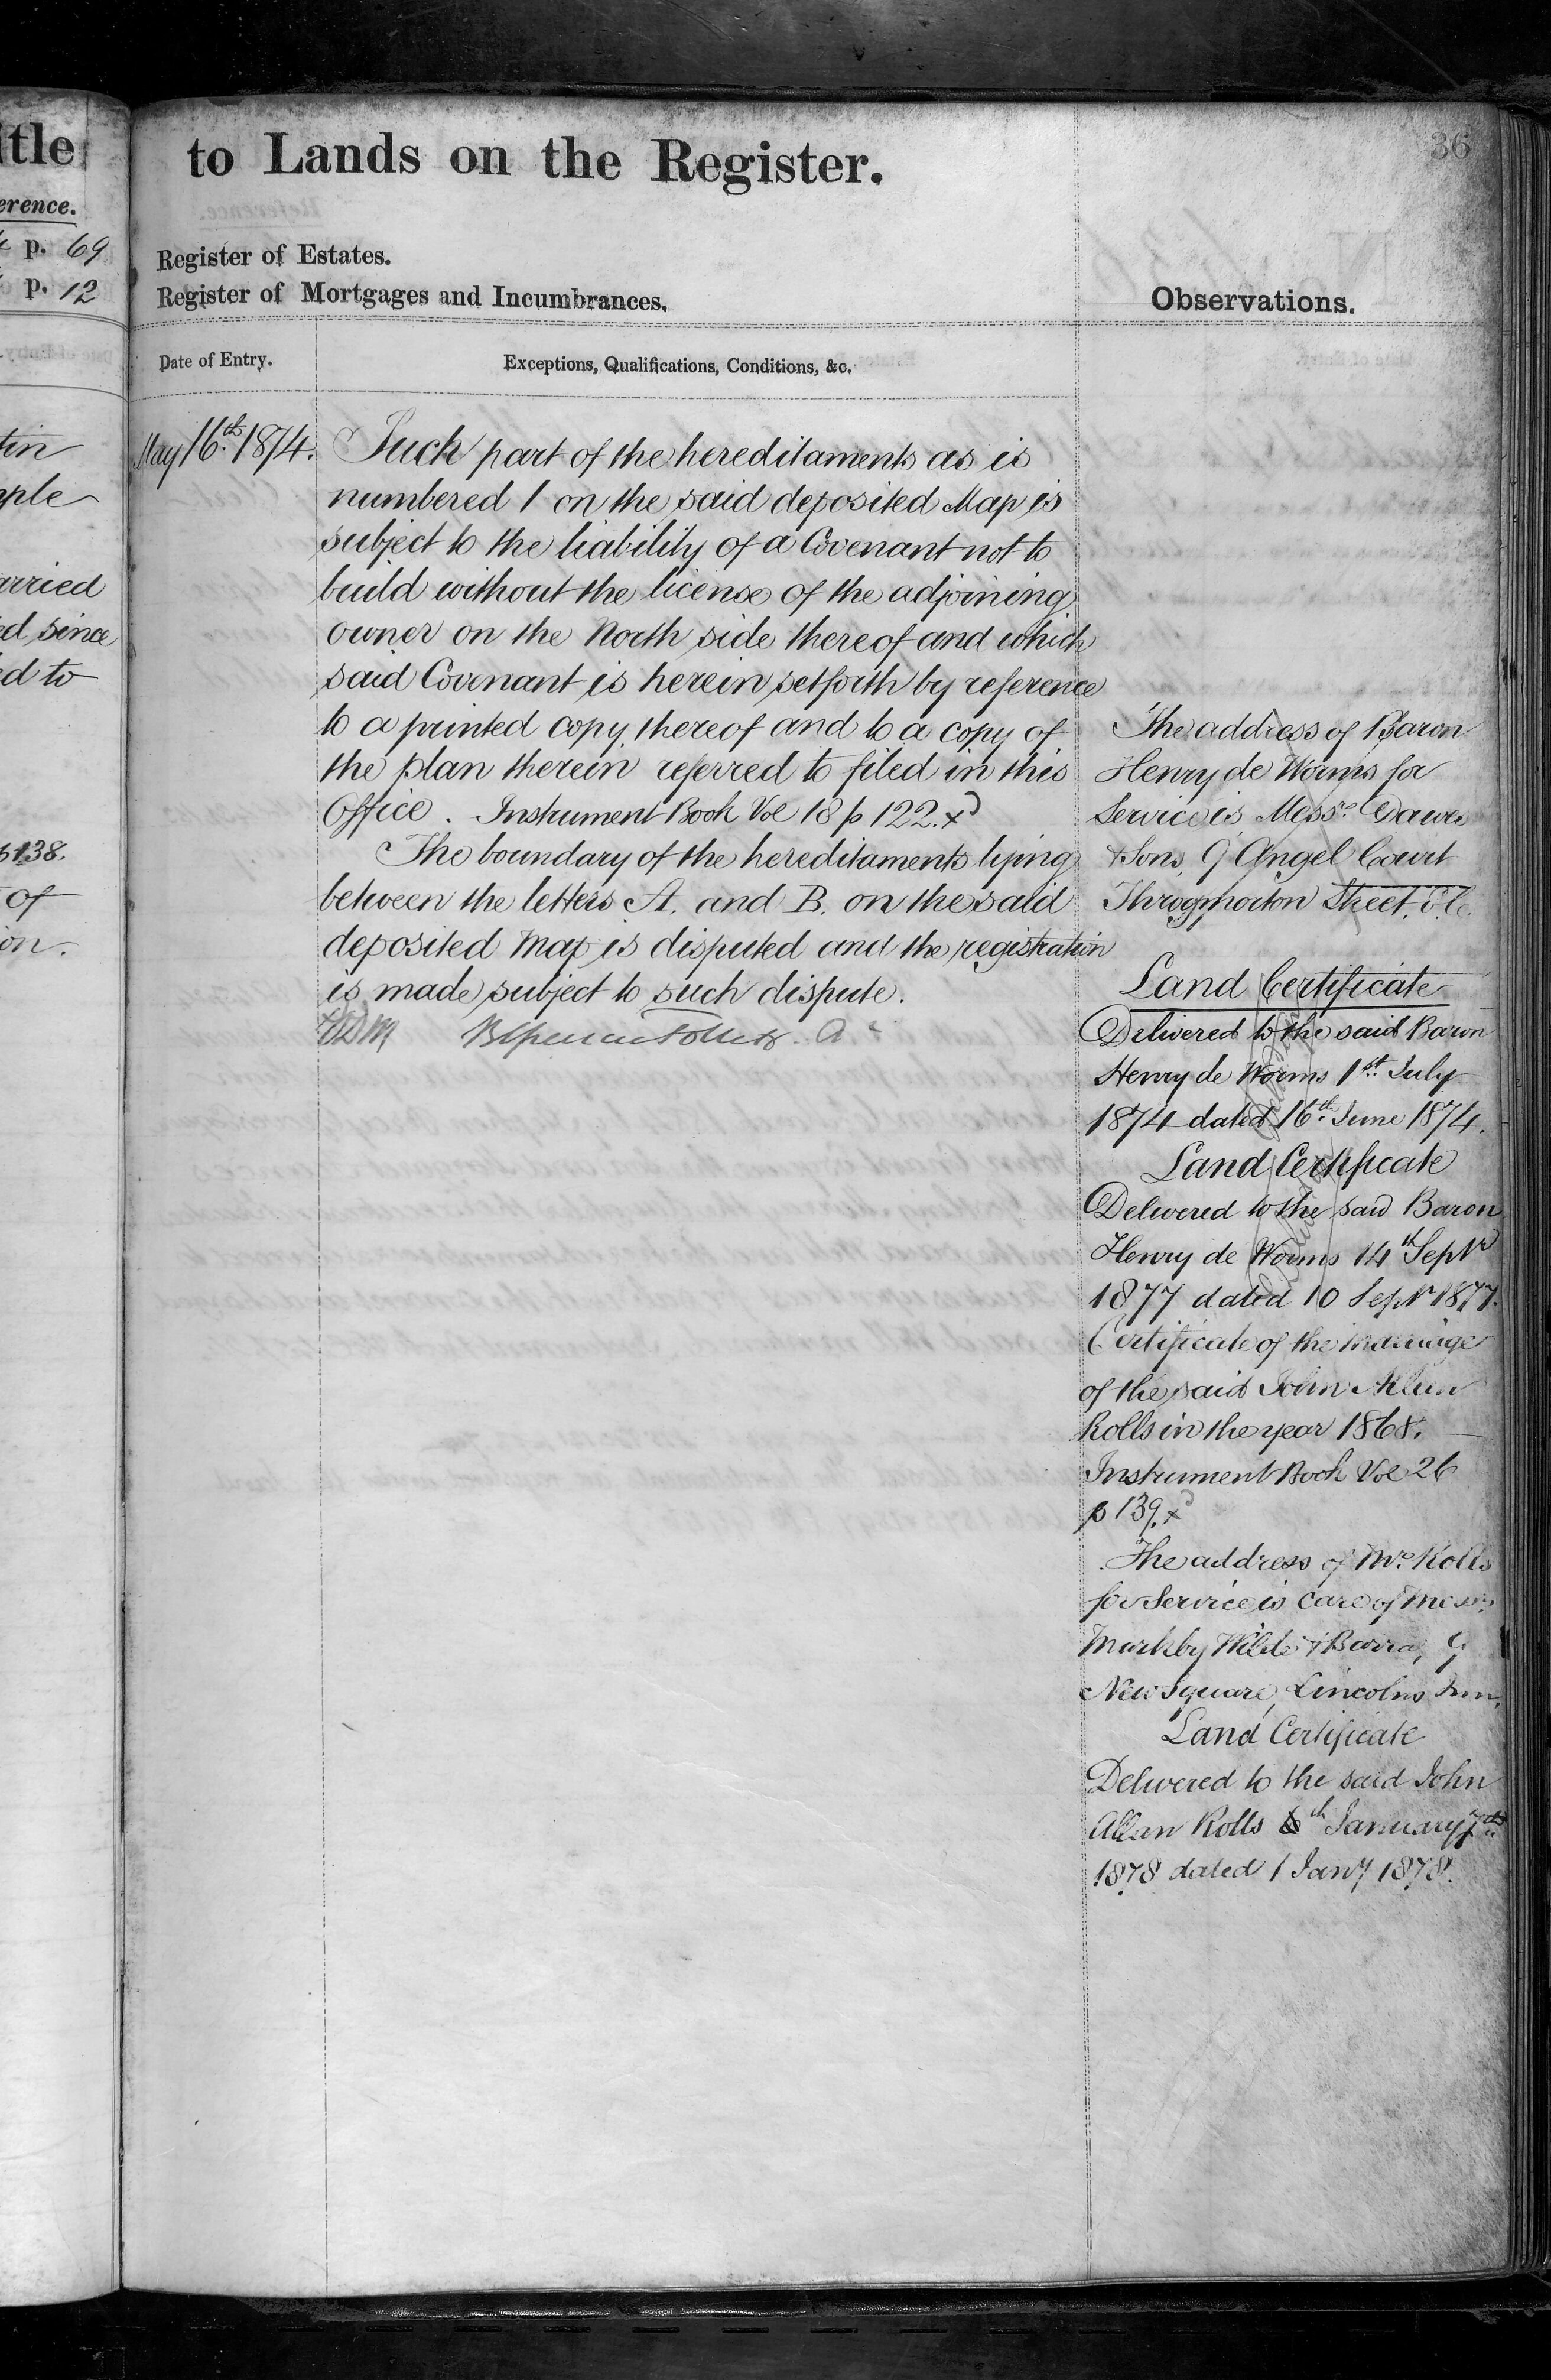 itle
erence.
p. 69
p. 12
tin
mple
arried
ed since
ed to
p 138.
of
on.
to Lands on the Register.
36
Register of Estates.
Register of Mortgages and Incumbrances.
Observations.
Date of Entry.
Exceptions, Qualifications, Conditions, &c.
May 16th 1874.
Such part of the hereditaments as is
numbered 1 on the said deposited Map is
subject to the liability of a Covenant not to
build without the license of the adjoining
owner on the North side thereof and which
said Covenant is herein setforth by reference
to a printed copy thereof and to a copy of
the plan therein referred to filed in this
Office. Instrument Book Vol 18 p 122. x
The boundary of the hereditaments lying
between the letters A. and B. on the said
deposited Map is disputed and the registration
is made subject to such dispute.
The address of Baron
Henry de Worms for
Service is Messrs Dawes
& Sons, 9 Angel Court
Throgmorton Street, E.C.
Land Certificate
Delivered to the said Baron
Henry de Worms 1st July
1874 dated 16th June 1874.
Land Certificate
Delivered to the said Baron
Henry de Worms 14th Septr
1877 dated 10 Septr 1877.
Certificate of the Marriage
of the said John Allan
Rolls in the year 1868.
Instrument Book Vol 26
p 139. x
The address of Mr Rolls
for Service is care of Messrs
Markby Wilde & Burra, 9
New Square, Lincolns Inn.
Land Certificate
Delivered to the said John
Allan Rolls 6th January 7th
1878 dated 1 Jany 1878.